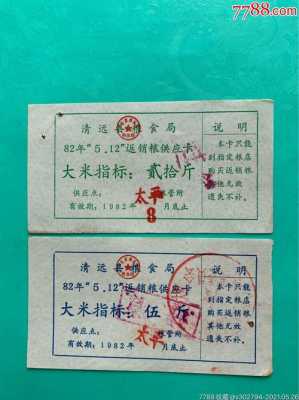 7788.com
清远县粮食局
82年“5.12”返销粮供应卡
大米指标：贰拾斤
供应点：太平粮管所
有效期：1982年8月底止
说明
本卡只能
到指定粮店
购买返销粮
其他无效
遗失不补。
清远县粮食局
82年“5.12”返销粮供应卡
大米指标：伍斤
供应点：太平粮管所
有效期：1982年 月底止
说明
本卡只能
到指定粮店
购买返销粮
其他无效
遗失不补。
7788收藏@s302794-2021.05.26